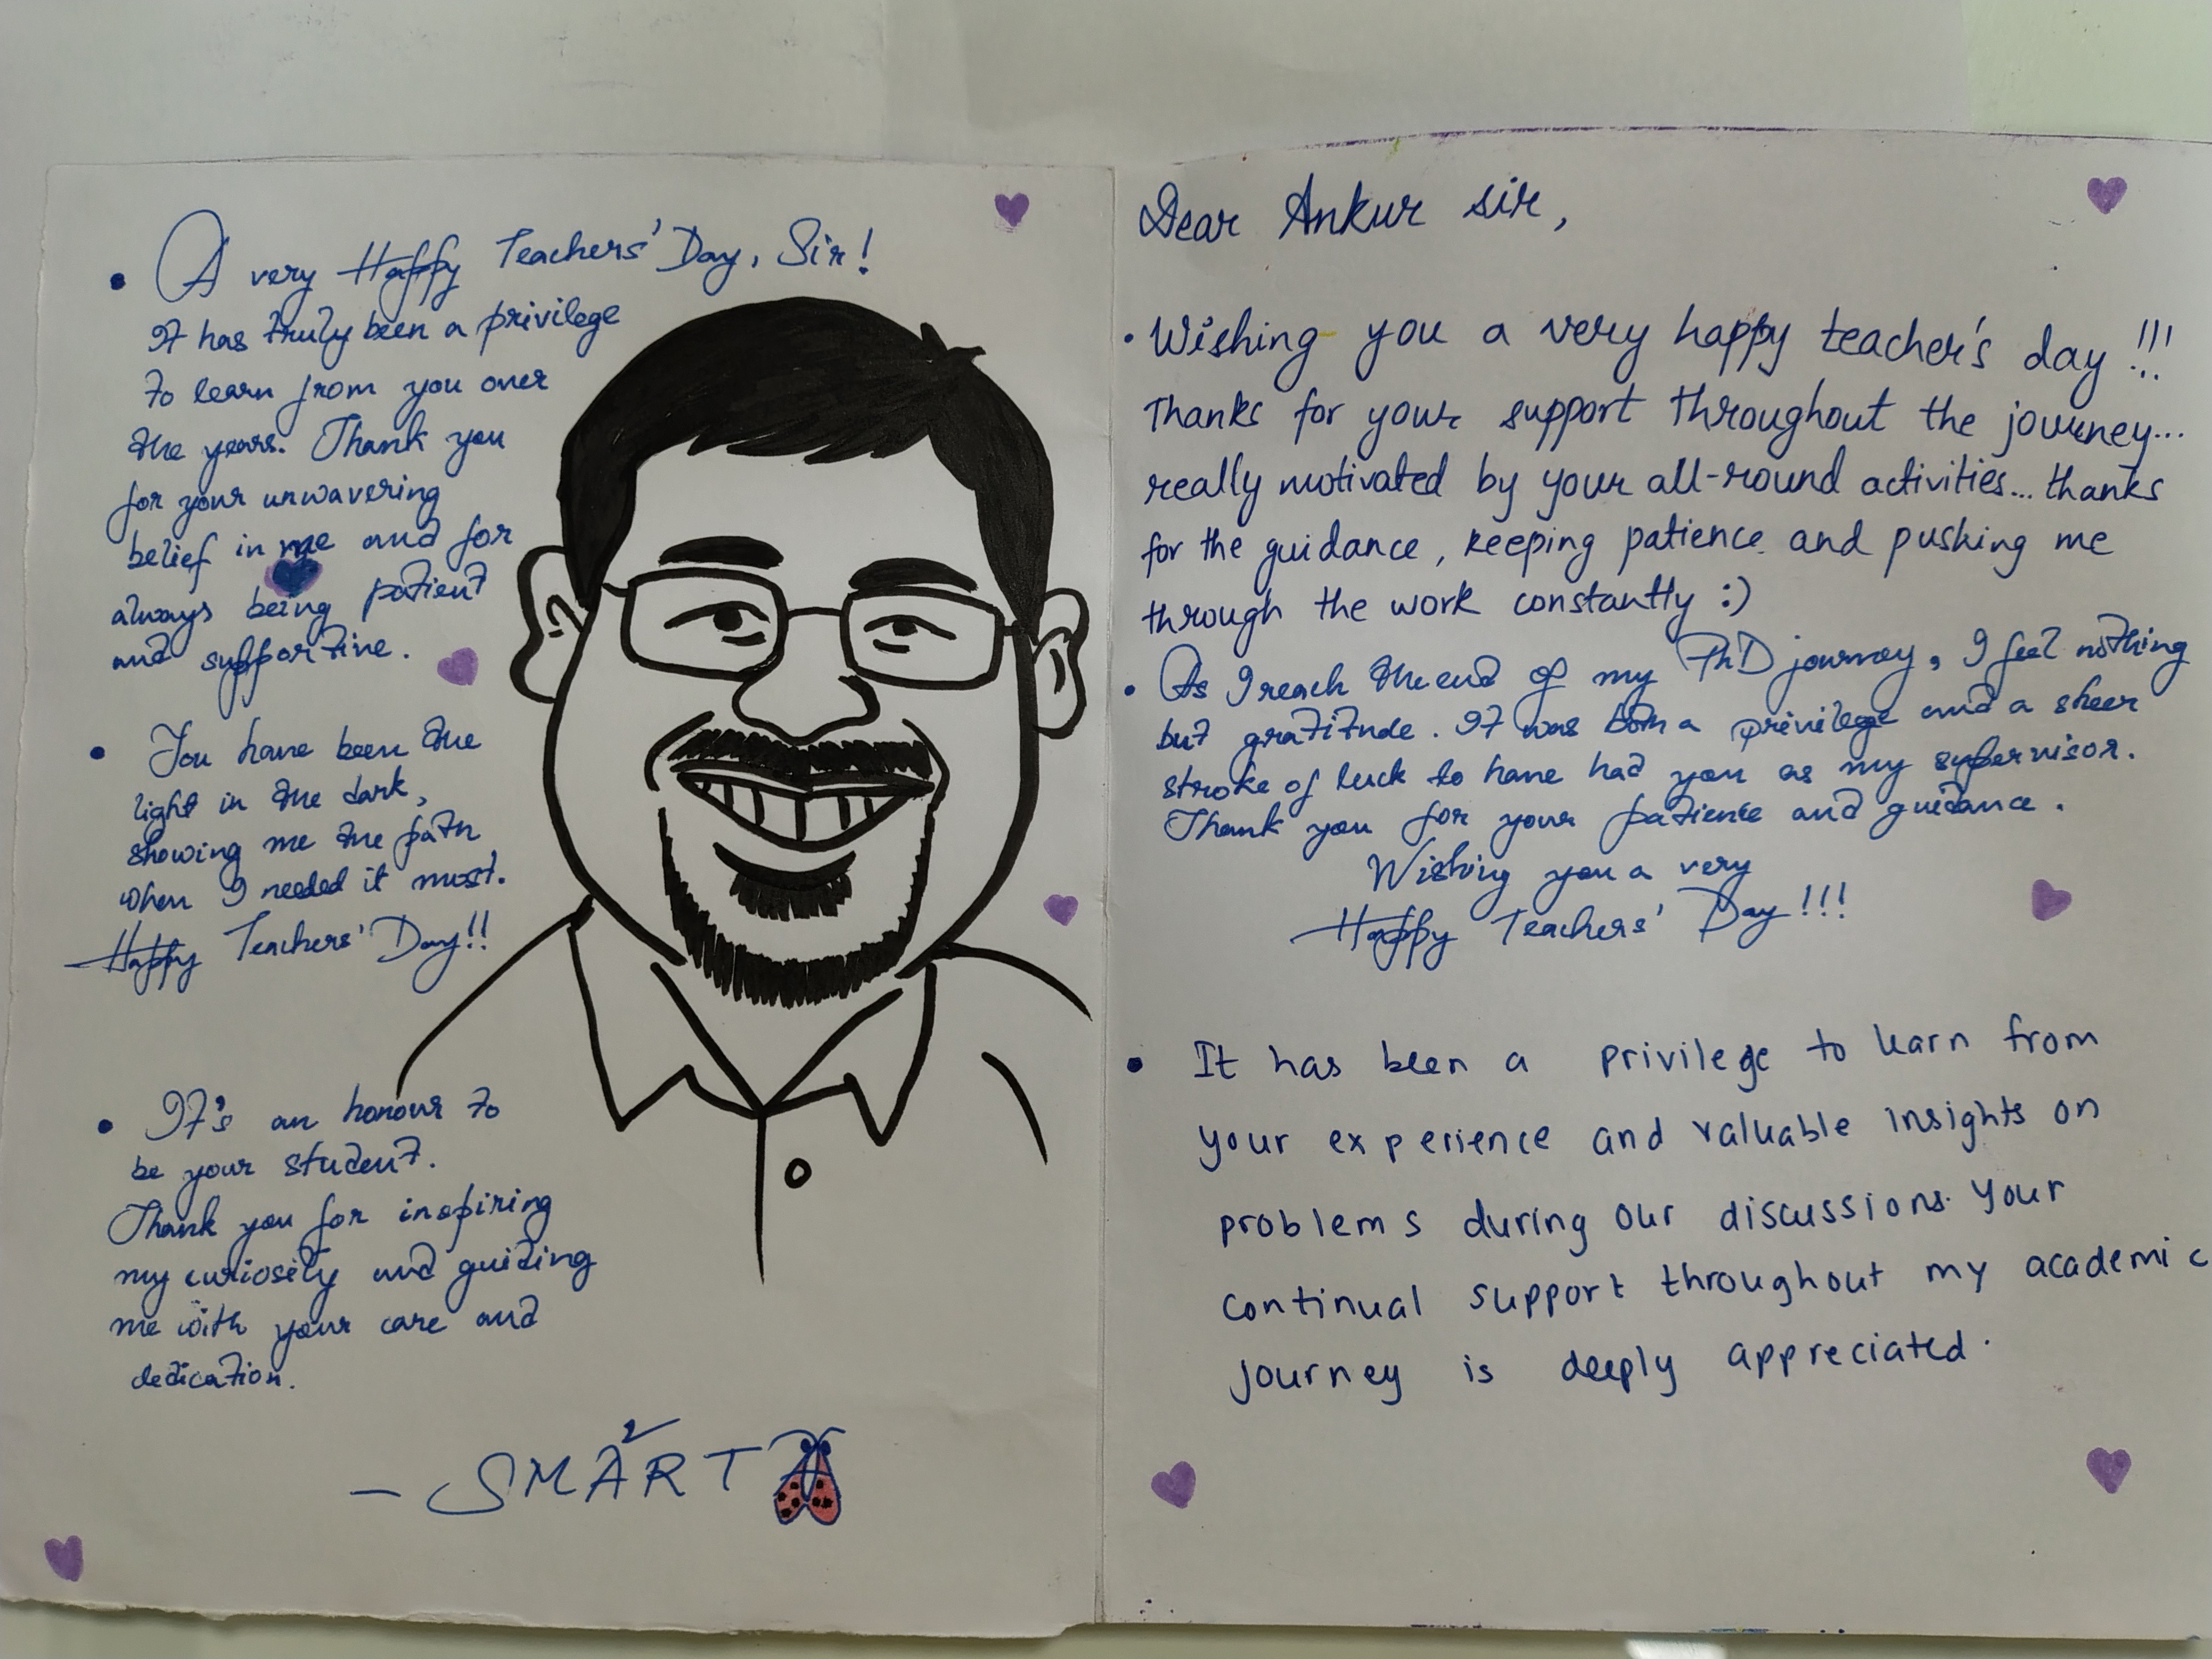 • A very Happy Teachers' Day, Sir!
It has truly been a privilege
to learn from you over
the years. Thank you
for your unwavering
belief in me and for
always being patient
and supportive.
• You have been the
light in the dark,
showing me the path
when I needed it most.
Happy Teachers' Day!!
• It's an honour to
be your student.
Thank you for inspiring
my curiosity and guiding
me with your care and
dedication.
- SMA²RT
Dear Ankur sir,
• Wishing you a very happy teacher's day !!!
Thanks for your support throughout the journey...
really motivated by your all-round activities... thanks
for the guidance, keeping patience and pushing me
through the work constantly :)
• As I reach the end of my PhD journey, I feel nothing
but gratitude. It was both a privilege and a sheer
stroke of luck to have had you as my supervisor.
Thank you for your patience and guidance.
Wishing you a very
Happy Teachers' Day!!!
• It has been a privilege to learn from
your experience and valuable insights on
problems during our discussions. Your
continual support throughout my academic
journey is deeply appreciated.